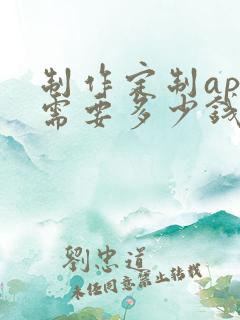 制作定制ap
需要多少钱
劉忠道
未经同意禁止转载